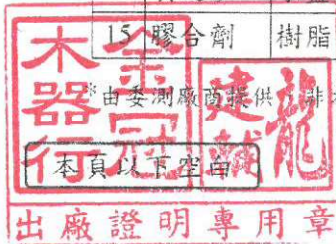 15 膠合劑 樹脂
*由委測廠商提供 非
本頁以下空白
金冠
木器行
建龍
出廠證明專用章